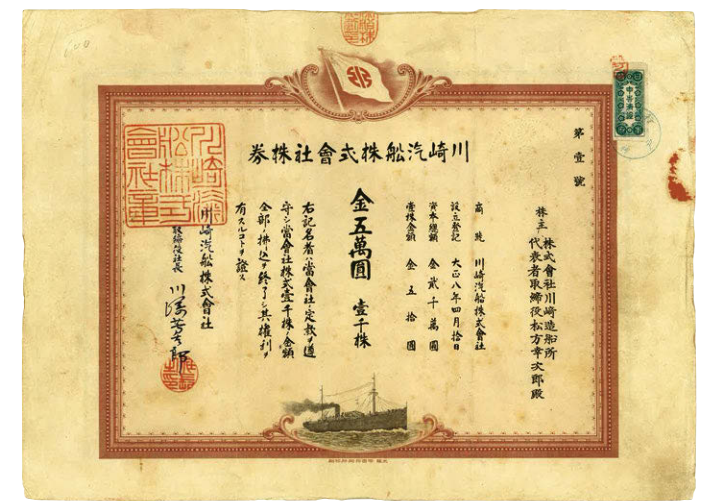 川崎汽船株式會社株券
第壹號
株主 株式會社川崎造船所
代表者取締役松方幸次郎殿
商號 川崎汽船株式會社
設立登記 大正八年四月拾日
資本總額 金貳千萬圓
壹株金額 金五拾圓
金五萬圓 壹千株
右記名者ハ當會社ノ定款ヲ遵
守シ當會社株式壹千株ノ金額
全部ノ拂込ヲ終了シ其權利ヲ
有スルコトヲ證ス
川崎汽船株式會社
取締役社長 川崎芳太郎
川崎汽船株式會社章